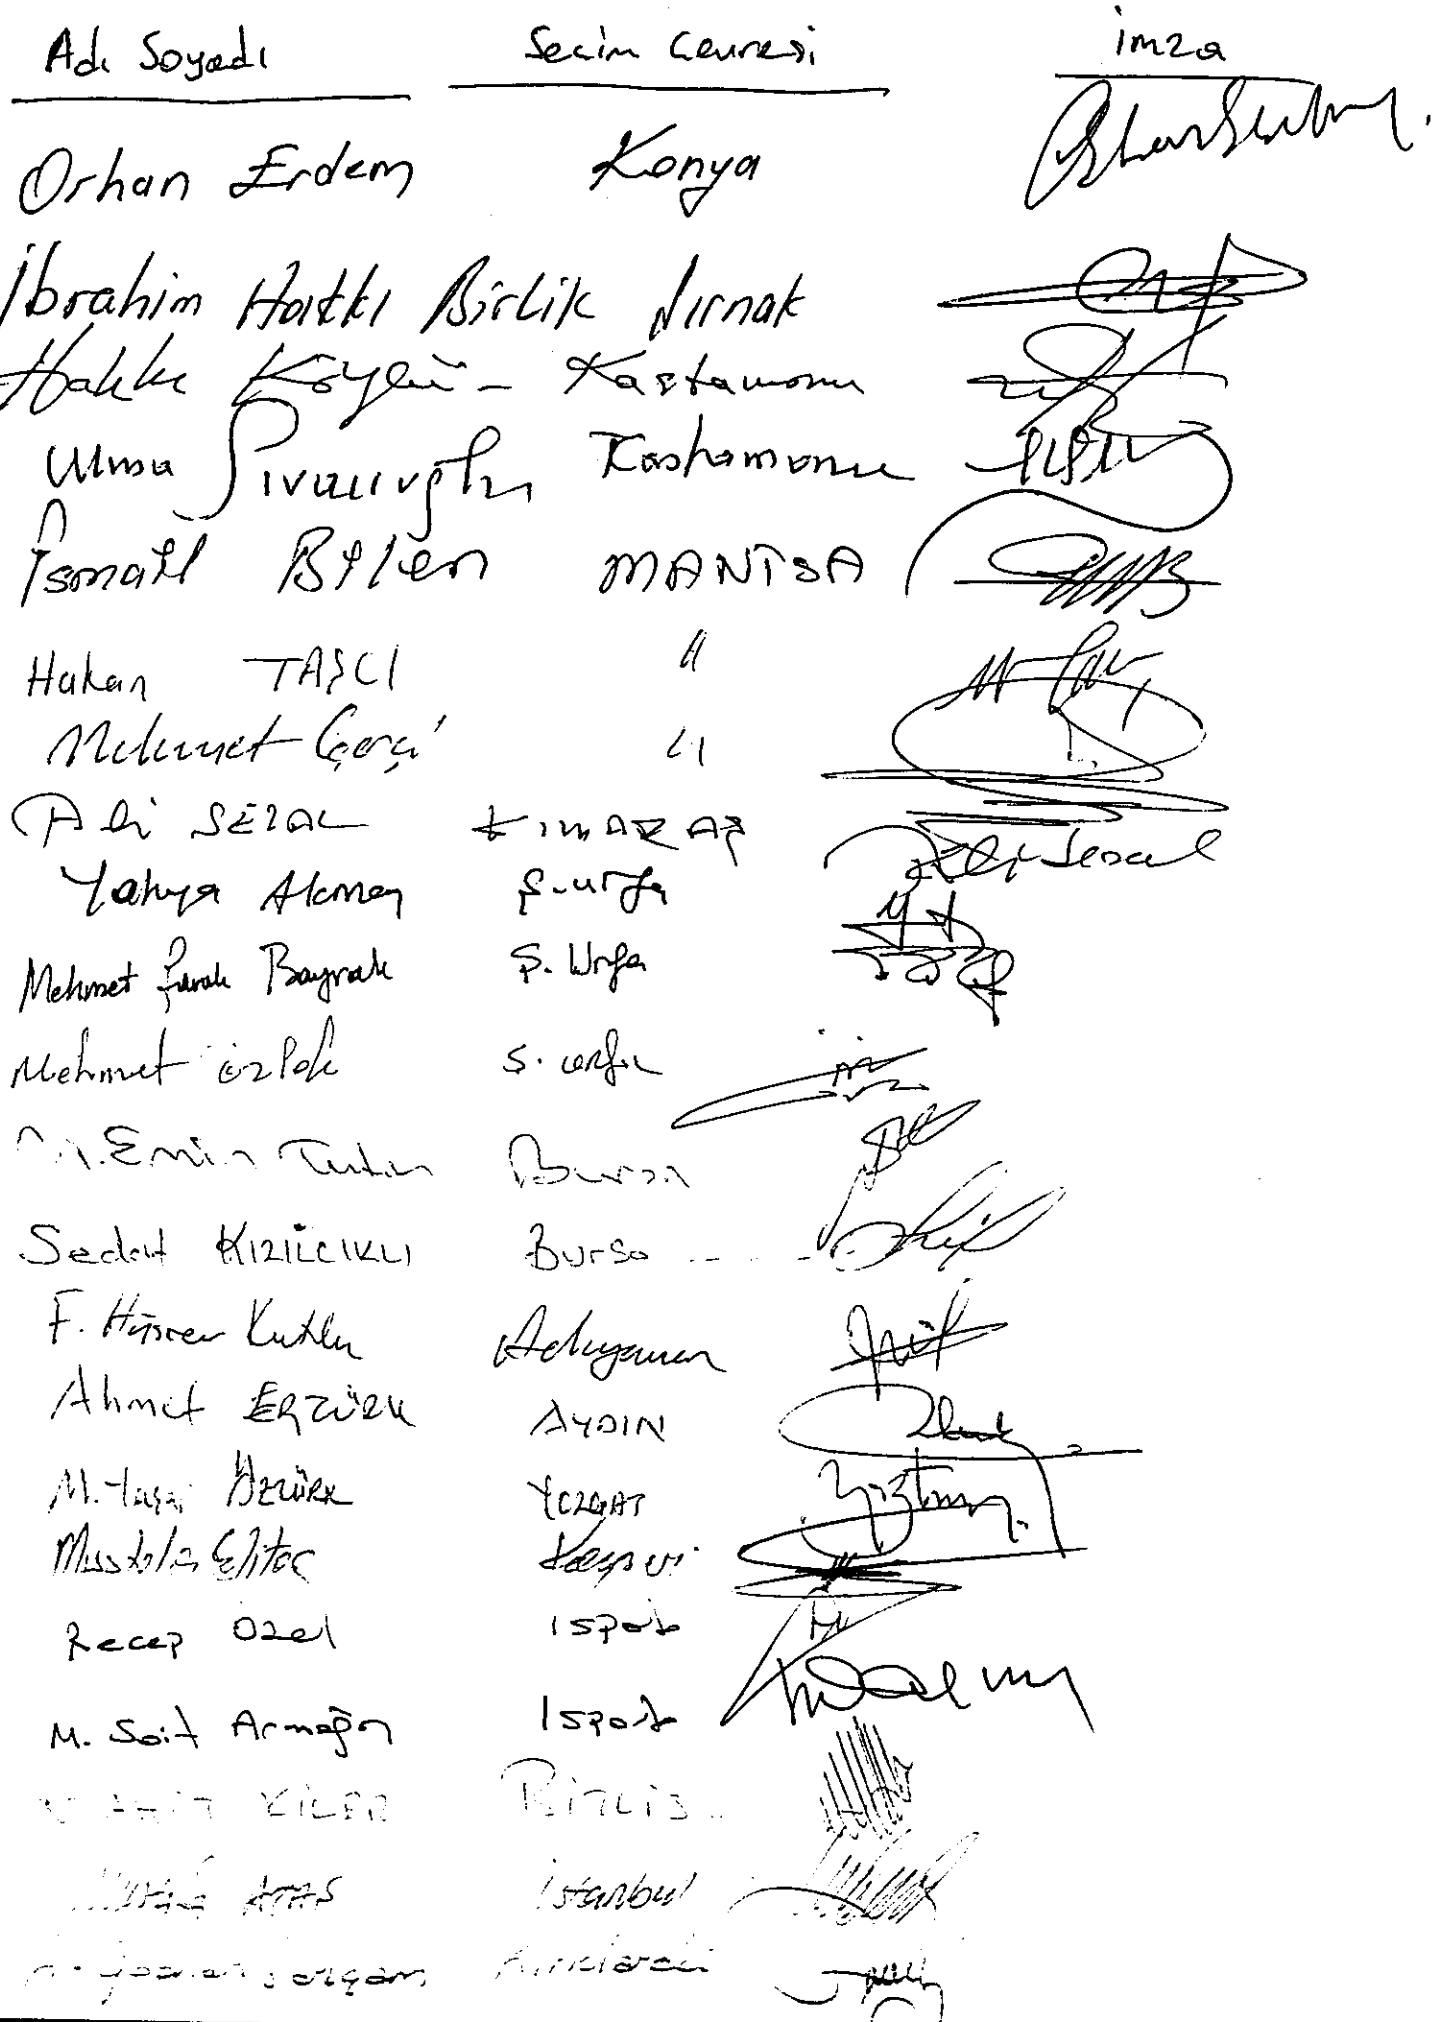 Adı Soyadı Seçim Çevresi İmza
Orhan Erdem Konya
İbrahim Hakkı Birlik Şırnak
Hakkı Köylü - Kastamonu
Musa Sıvacıoğlu Kastamonu
İsmail Bilen MANİSA
Hakan TAŞÇI "
Mehmet Çerçi "
Ali SEZAL K.MARAŞ
Yahya Akman Ş.urfa
Mehmet Faruk Bayrak Ş. Urfa
Mehmet Özlek Ş. urfa
M. Emin Tutan Bursa
Sedat KIZILCIKLI Bursa
F. Hüsrev Kutlu Adıyaman
Ahmet ERTÜRK AYDIN
M. Yaşar ÖZTÜRK YOZGAT
Mustafa Elitaş Kayseri
Recep Özel Isparta
M. Sait Armağan Isparta
VAHİT KİLER BİTLİS
ATAŞ İstanbul
Kırklareli